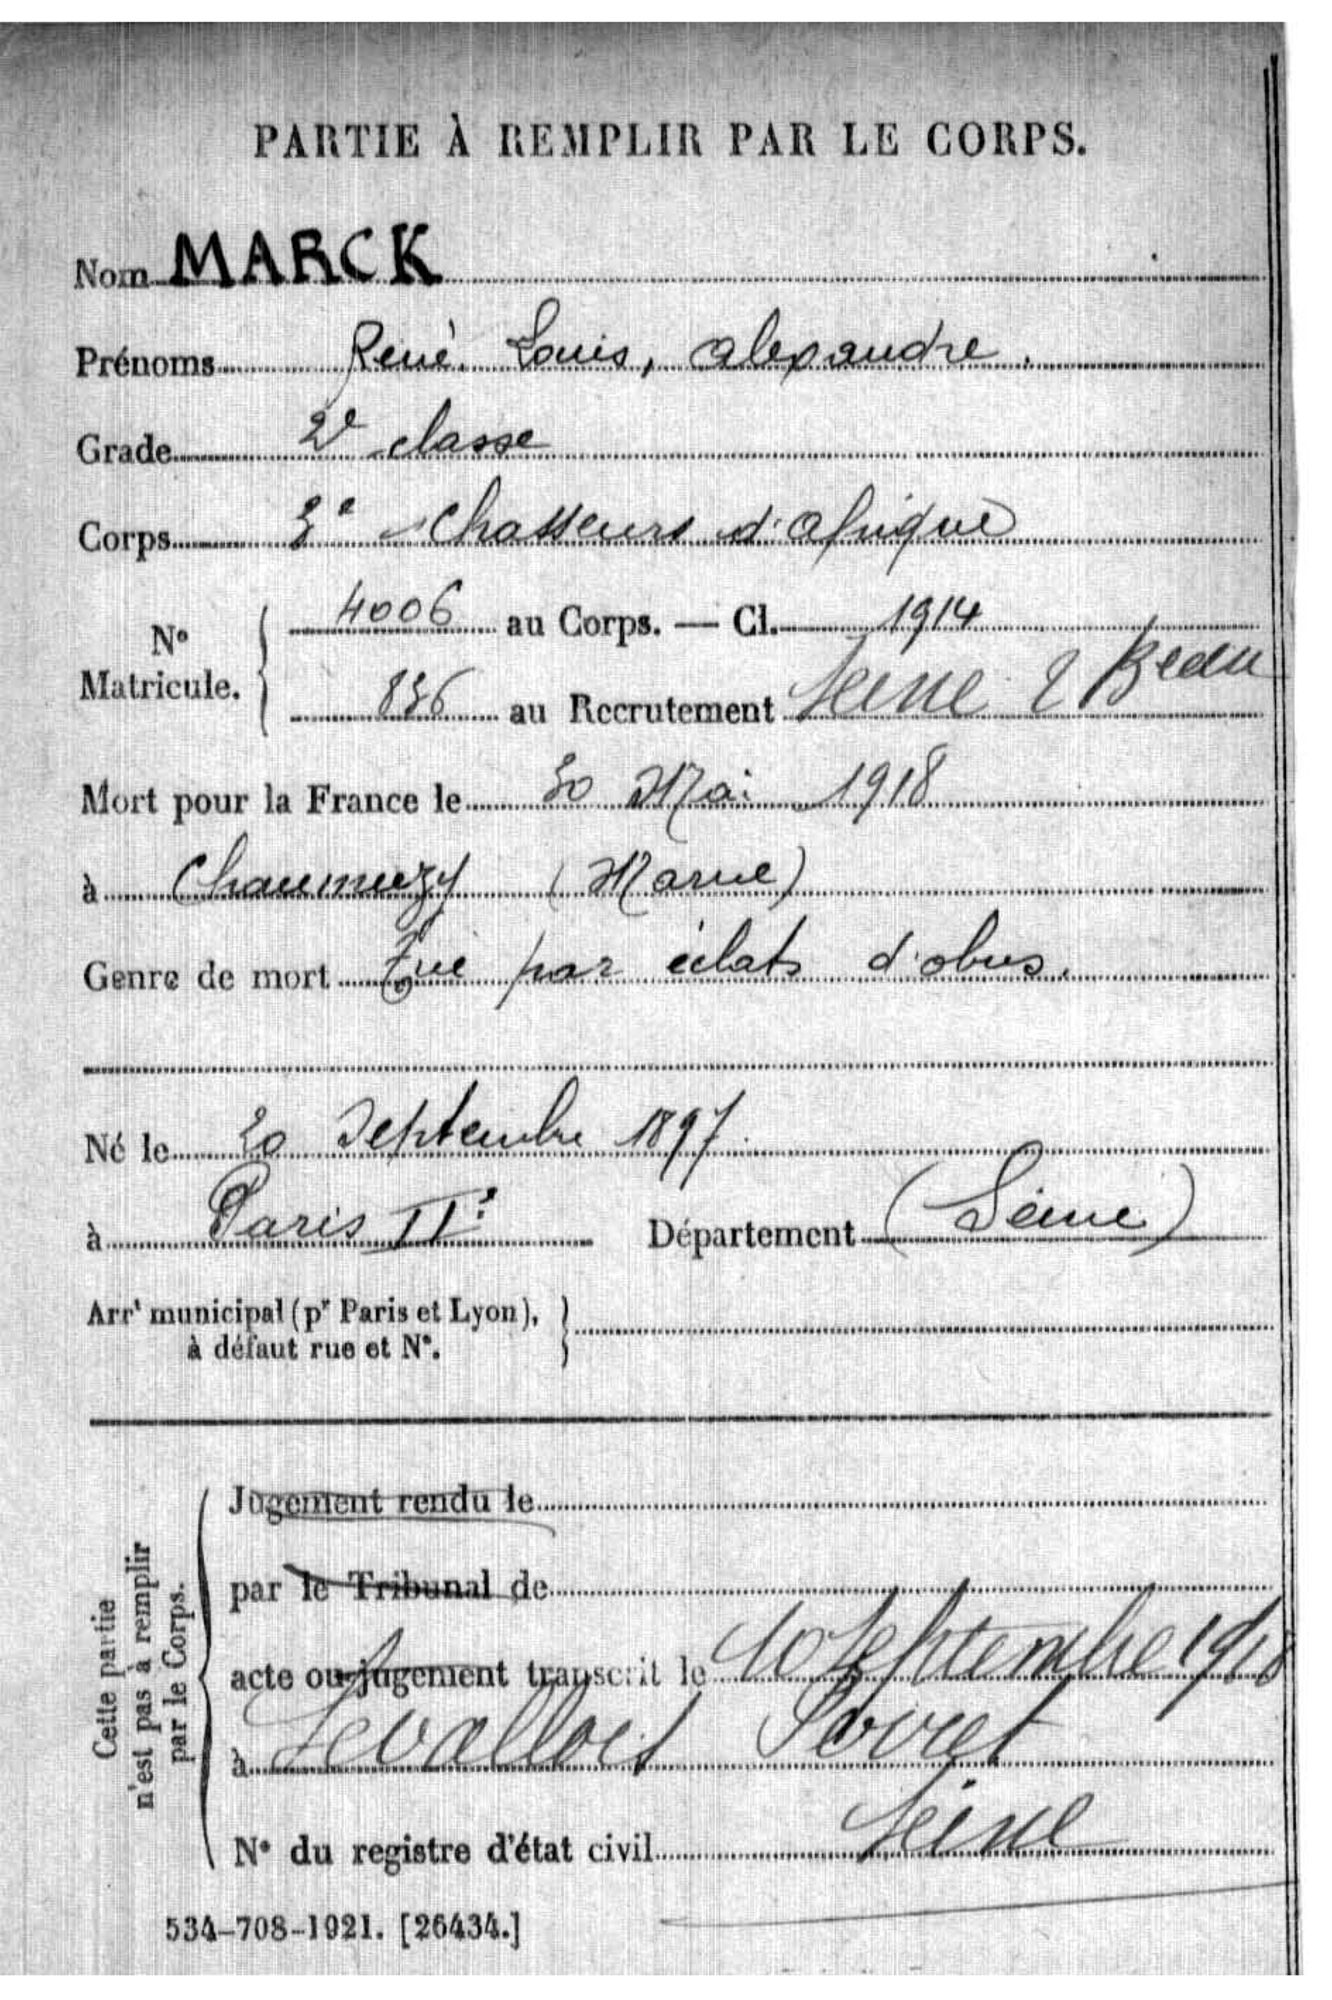 PARTIE À REMPLIR PAR LE CORPS.
Nom MARCK
Prénoms René, Louis, alexandre.
Grade 2e classe
Corps 2e Chasseurs d'afrique
N° Matricule. 4006 au Corps. — Cl. 1914
836 au Recrutement Seine 2 Beau
Mort pour la France le 30 Mai 1918
à Chaumuzy (Marne)
Genre de mort Tué par éclats d'obus.
Né le 20 Septembre 1897.
à Paris II: Département (Seine)
Arrt municipal (pr Paris et Lyon),
à défaut rue et N°.
Cette partie
n'est pas à remplir
par le Corps.
Jugement rendu le
par le Tribunal de
acte ou jugement transcrit le 10 Septembre 1918
à Levallois Perret
Seine
N° du registre d'état civil
534-708-1921. [26434.]